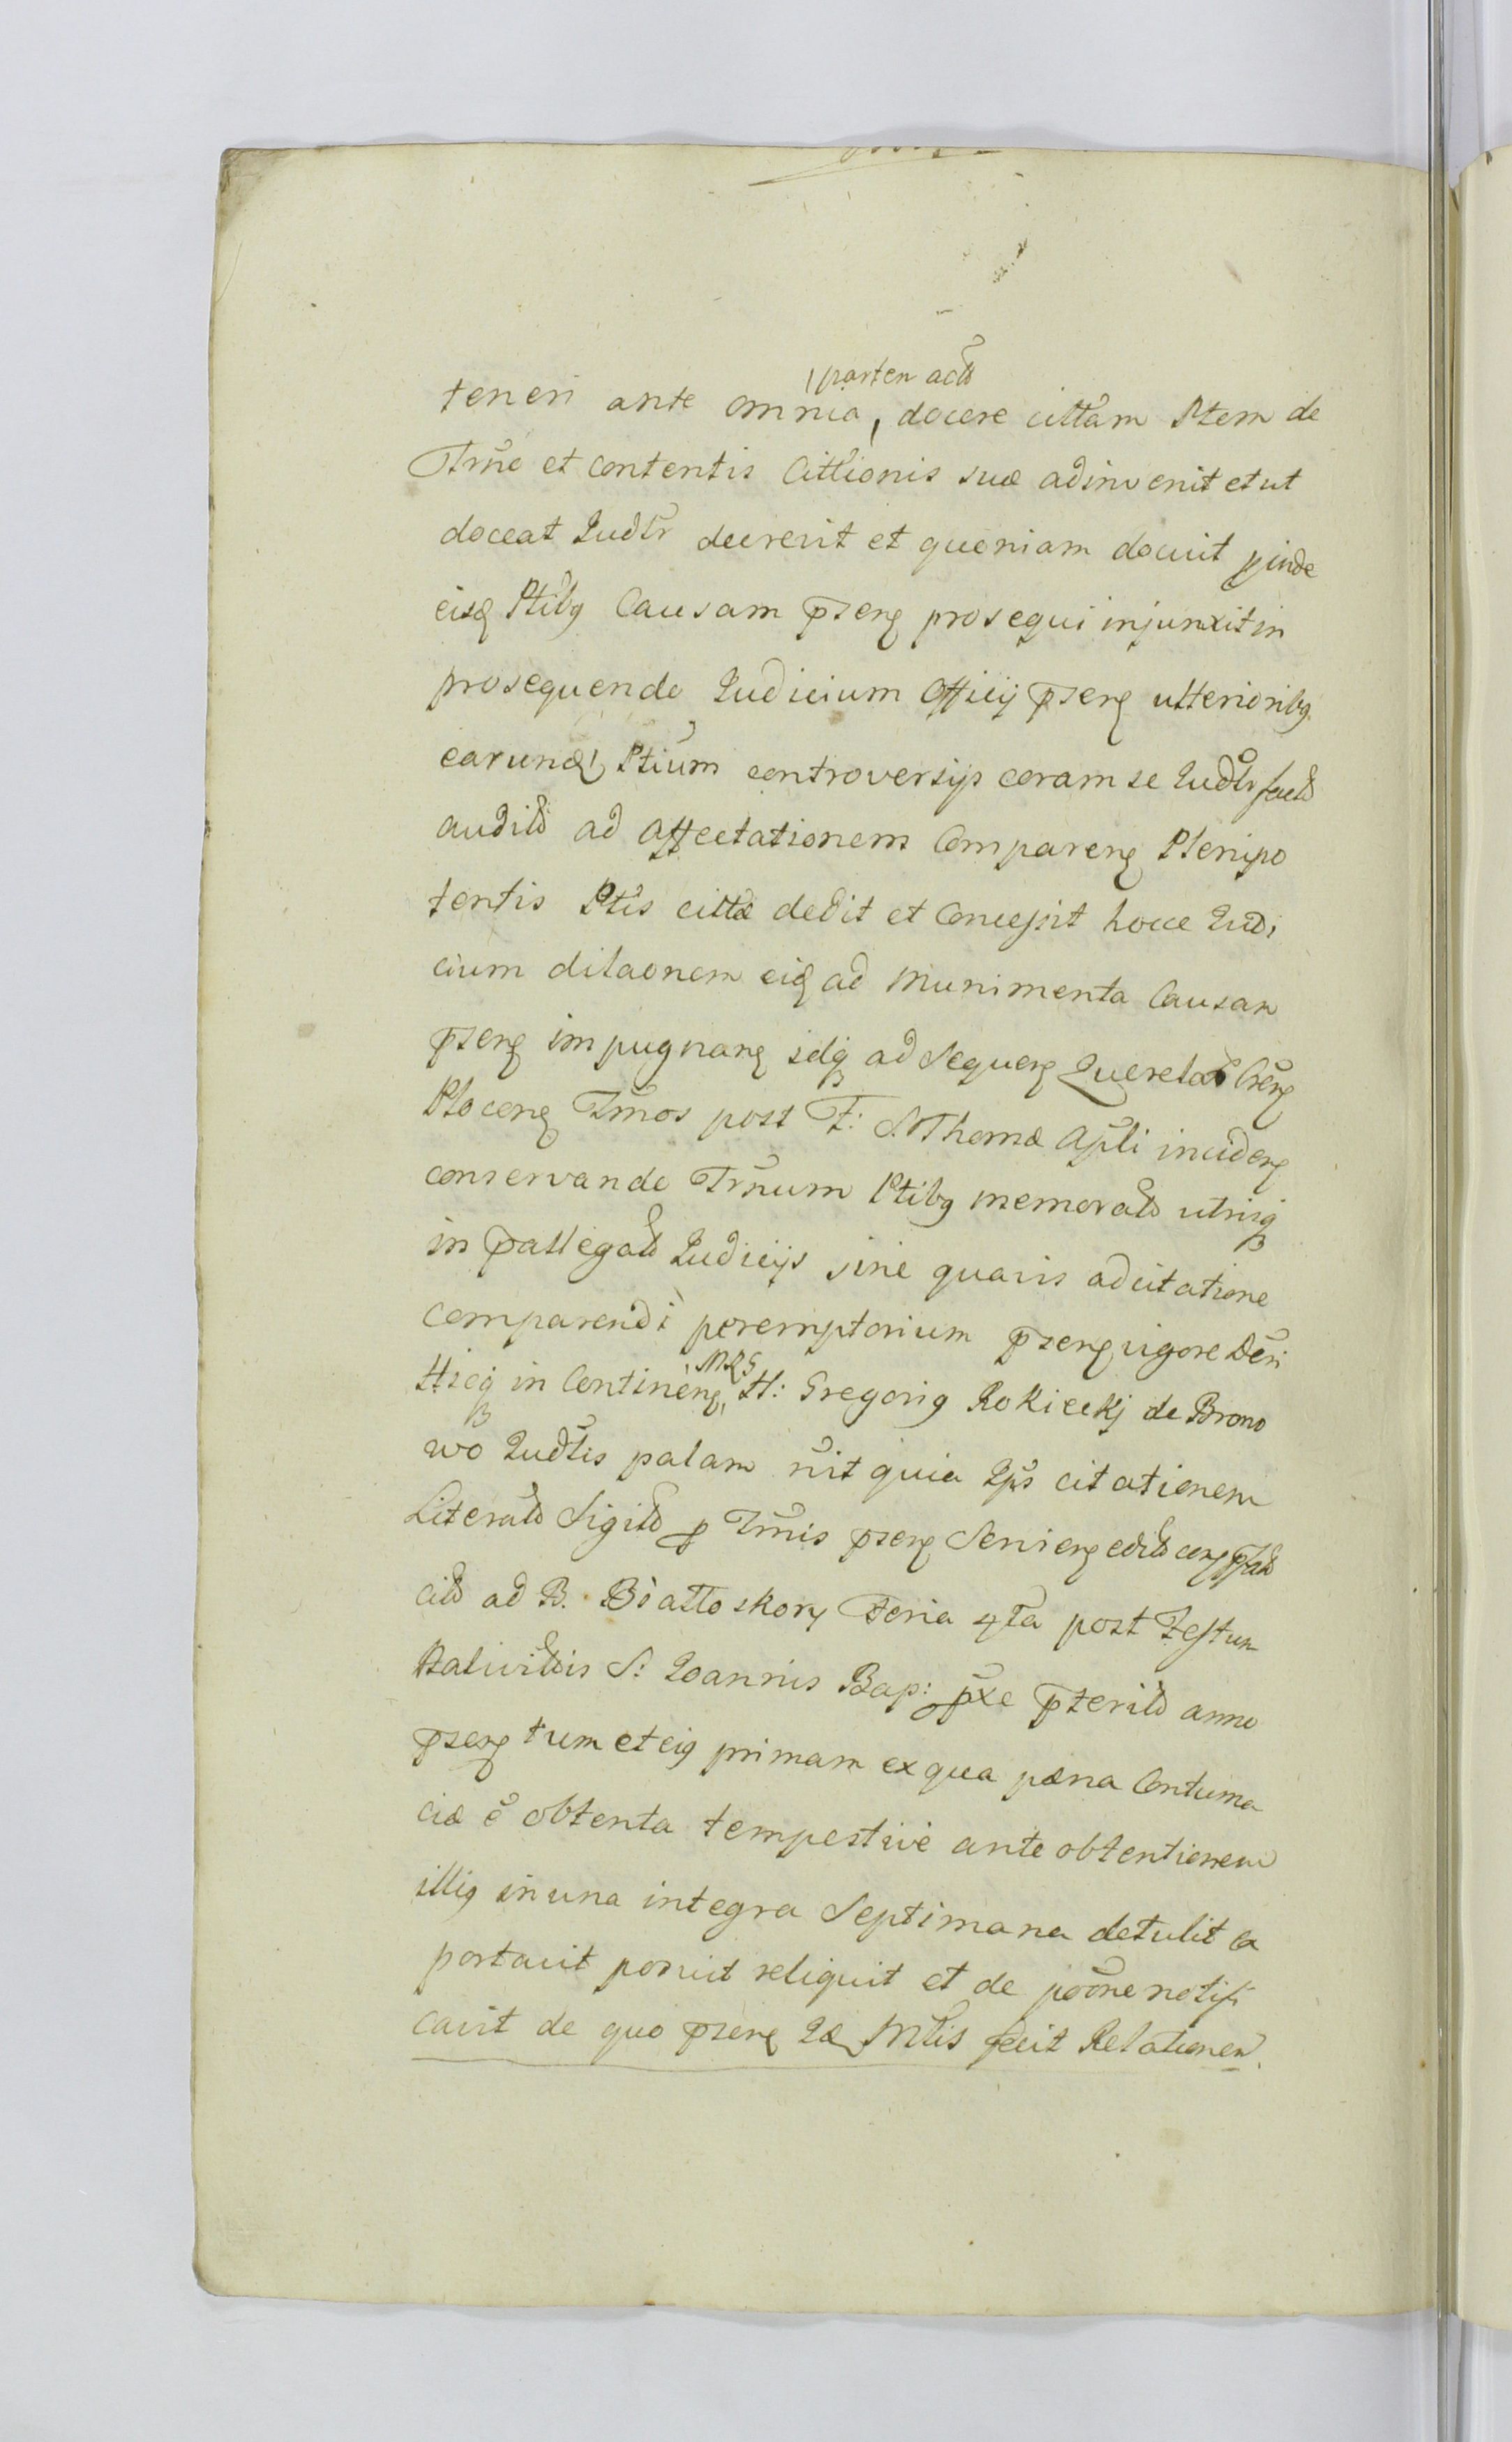 parten actð
teneri ante omnia, docere cittam Ptem de
Trno et contentis Cittionis suæ adinvenit et ut
doceat Judtr decrevit et quoniam docuit pinde
eisq Ptibq Causam pzenz prosequi injunxit in
prosequendo Judicium Officij pzenz ulterioribq
earundz Ptium controversijs coram se Judtr factð
auditð ad affectationem Comparenz Plenipo
tentis Ptis cittæ dedit et Concessit hocce Judi
cium dilaonem eid ad Munimenta Causam
pzenz impugnanz idq ad Sequenz Querelar Crenz
Plocenz Tmos post F: S. Thomæ Apli incidenz
conservando Trnum Ptibq memoratð utrisq
in pallegatð Judicijs sine quavis adcitatione
comparendi peremptorium pzenz vigore Dcri
Hseq in Continenz, MRS H: Gregoriq Rokicckj de Brono
wo Judtis palam rit quia Ips citationem
Literatð Sigilð p Tmis pzenz Servienz editð
citð ad B. Białloskory Feria 4ta post Festum
Nativittis S: Joannis Bap: pxe pteritð anno
pzenz tum et eiq primam ex qua pæna Contuma
ciæ e obtenta tempestive ante obtentionem
illiq in una integra Septimana detulit
portavit posuit reliquit et de poõne notifi
cavit de quo pzenz Mtis fecit Relationem.